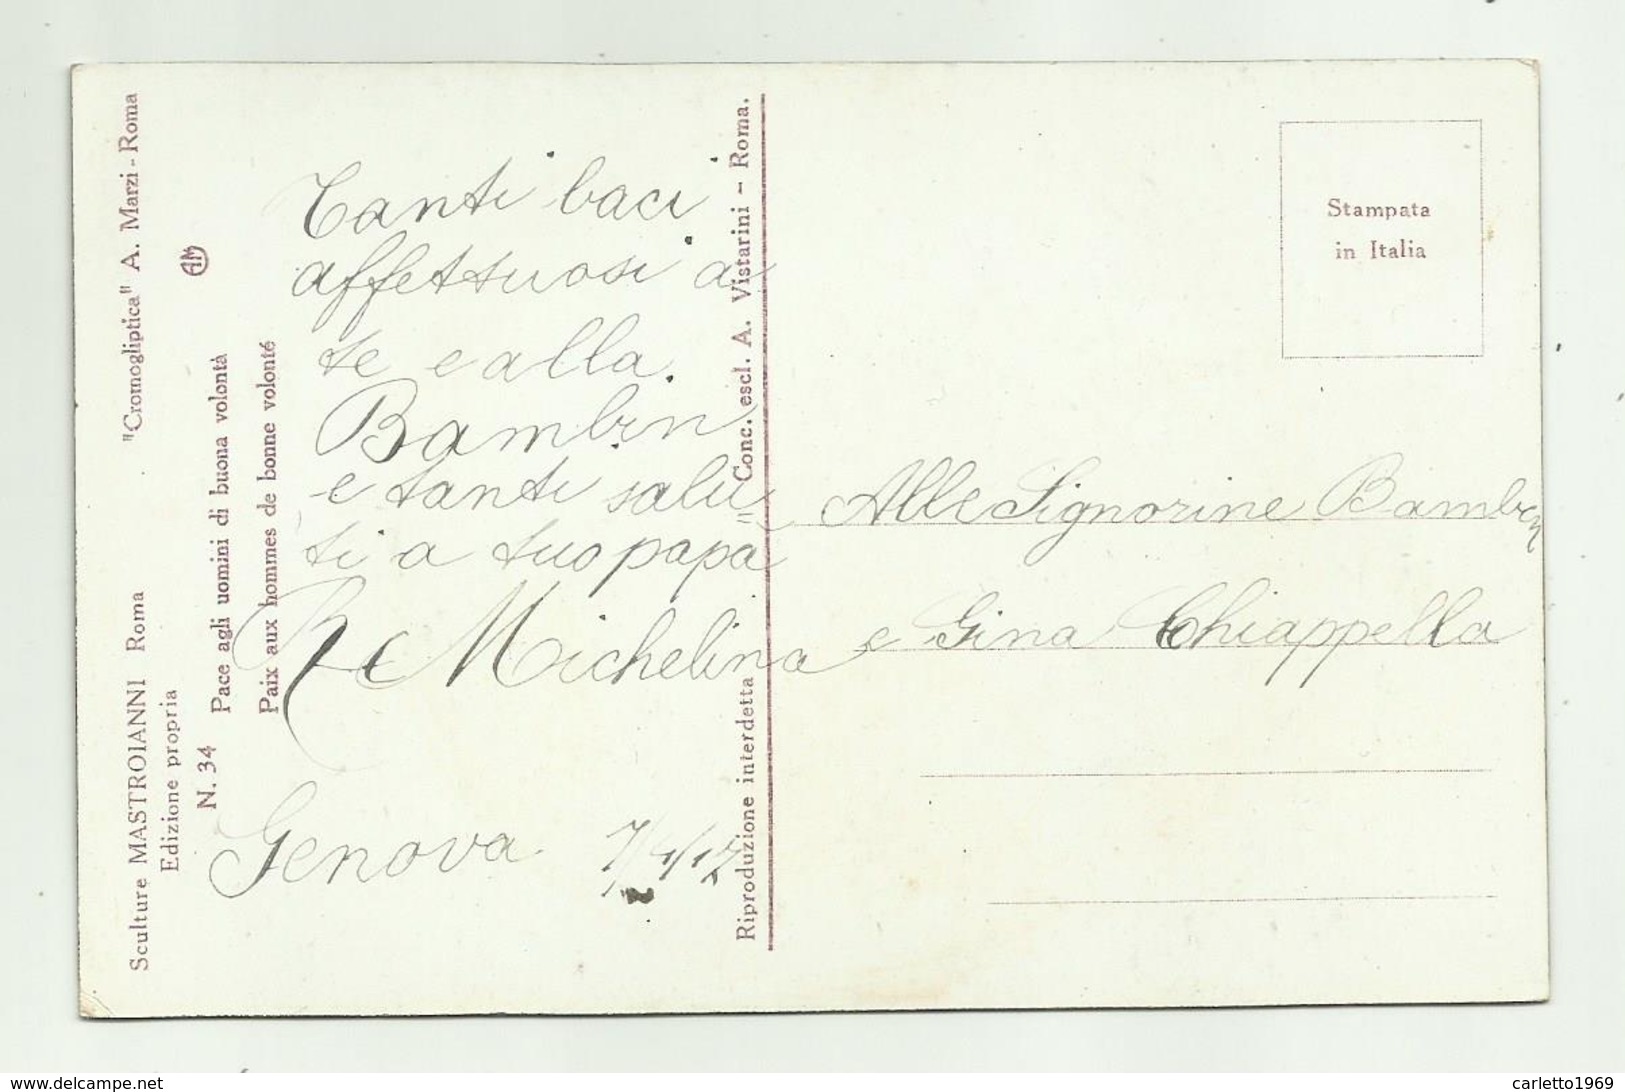 Sculture MASTROIANNI Roma
"Cromogliptica" A. Marzi - Roma
Edizione propria
AM
N. 34
Pace agli uomini di buona volontà
Paix aux hommes de bonne volonté
Tanti baci
affettuosi a
te e alla
Bambin
e tanti salu=
ti a tuo papà
Michelina
Genova
Riproduzione interdetta
Conc. escl. A. Vistarini - Roma.
Stampata
in Italia
Alle Signorine Bambin
e Gina Chiappella
www.delcampe.net
carletto1969